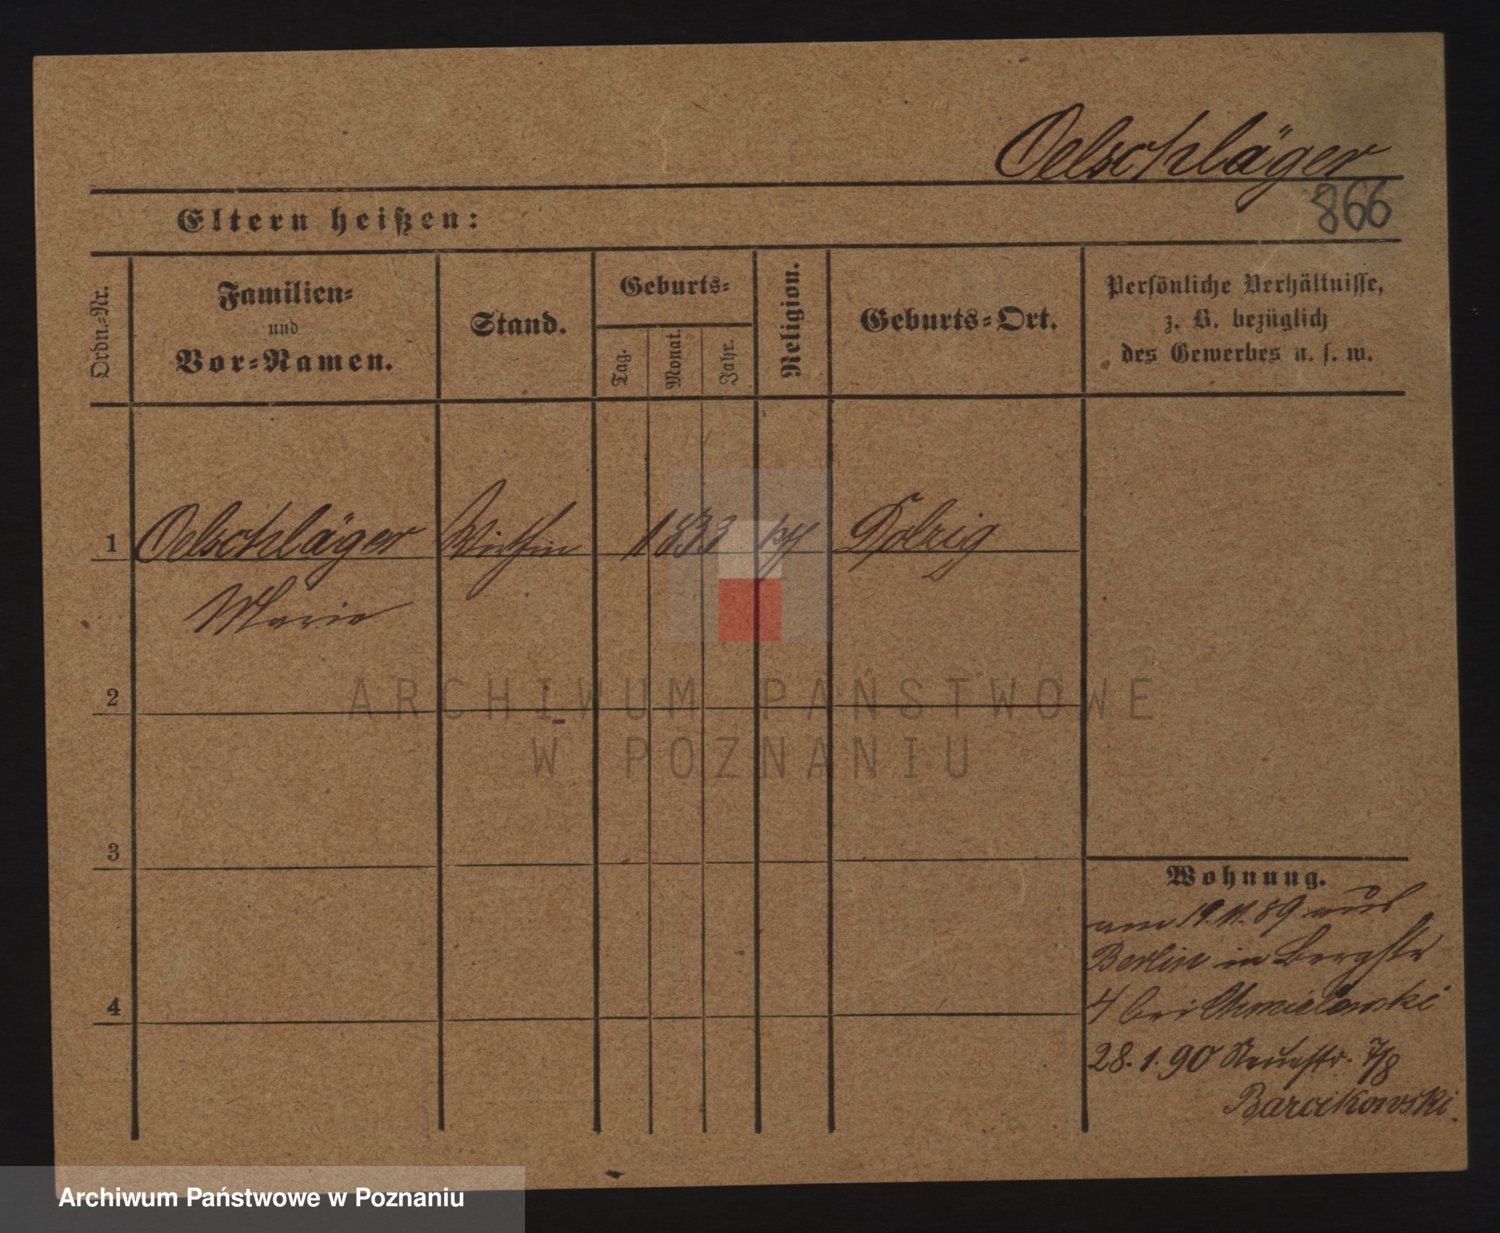 Oelschläger
866
Eltern heißen:
Ordn.-Nr.
Familien-
und
Vor-Namen.
Stand.
Geburts-
Tag.
Monat.
Jahr.
Religion.
Geburts-Ort.
Persönliche Verhältnisse,
z. B. bezüglich
des Gewerbes u. s. w.
1 Oelschläger 1833 Dolzig
Marie
2
3
4
Wohnung.
am 19.11.89 aus
Berlin in Bergstr
4 bei Chmielewski
28.1.90 Neuestr. 7/8
Barcikowski.
ARCHIWUM PAŃSTWOWE
W POZNANIU
Archiwum Państwowe w Poznaniu